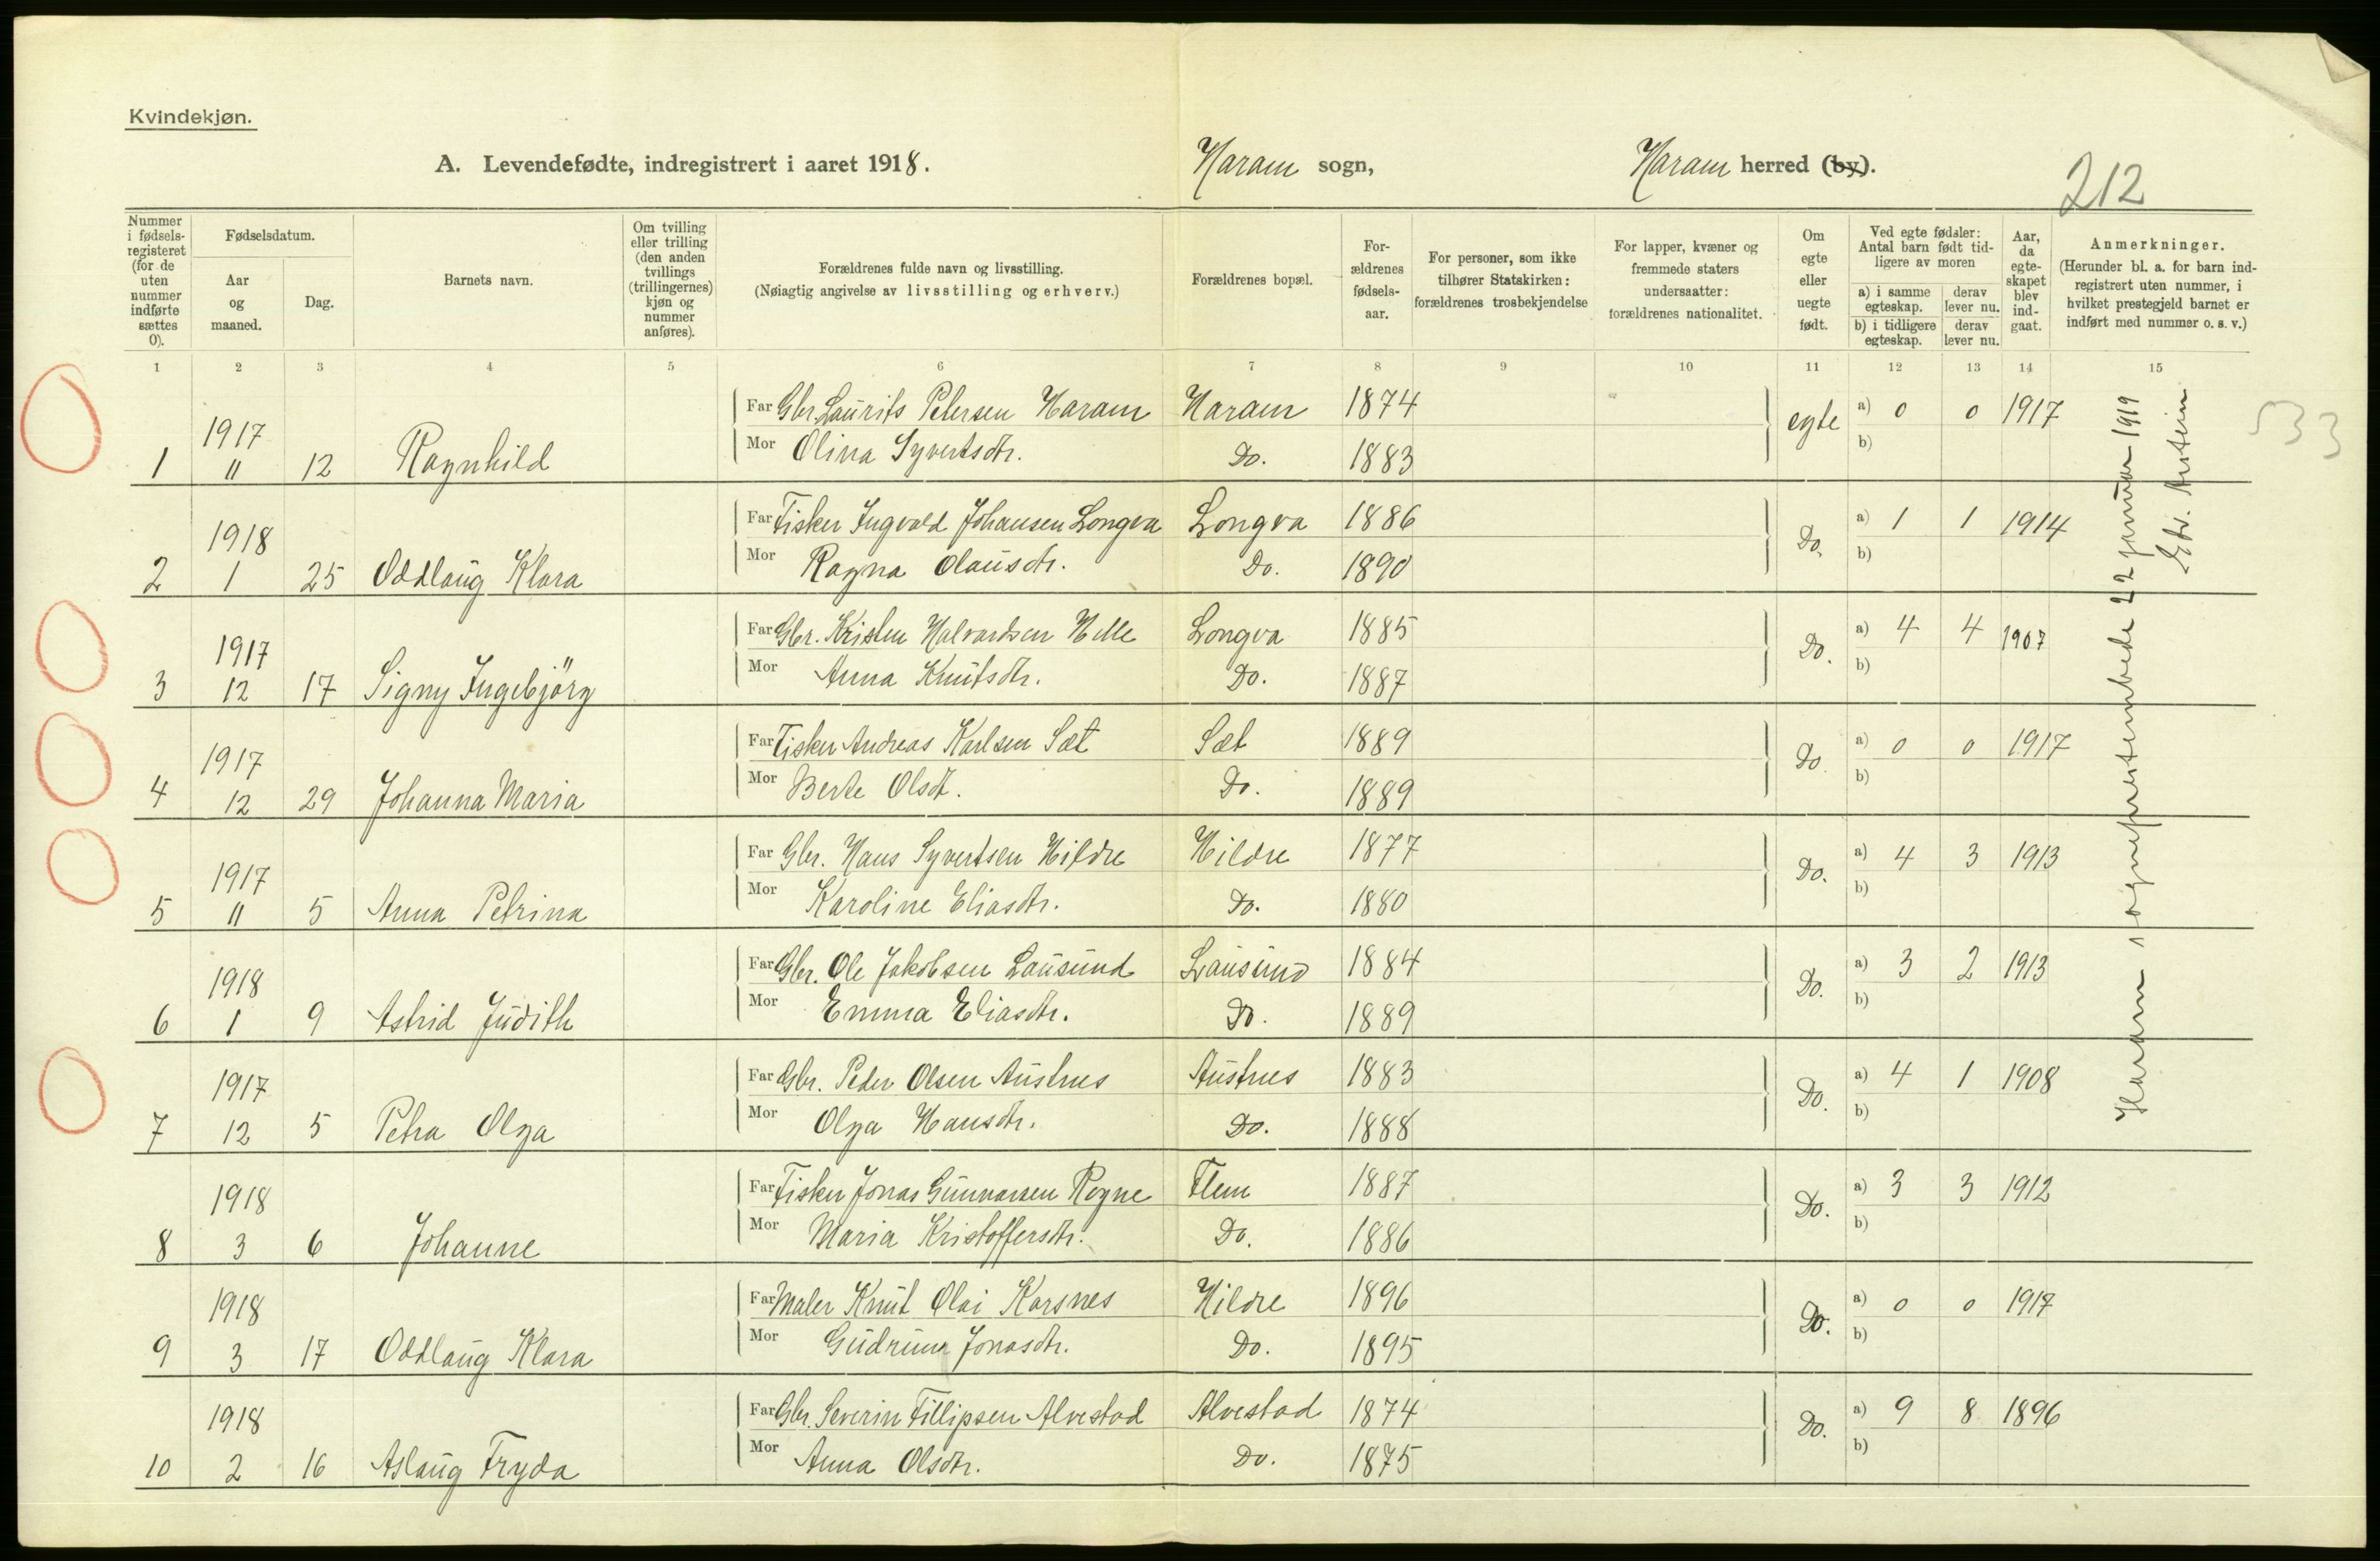 Kvindekjøn.
A. Levendefødte, indregistrert i aaret 1918. Haram sogn, Haram herred (by).
212
Nummer i fødselsregisteret (for de uten nummer indførte sættes 0).
Fødselsdatum.
Aar og maaned.
Dag.
Barnets navn.
Om tvilling eller trilling (den anden tvillings (trillingernes) kjøn og nummer anføres).
Forældrenes fulde navn og livsstilling. (Nøiagtig angivelse av livsstilling og erhverv.)
Forældrenes bopæl.
Forældrenes fødselsaar.
For personer, som ikke tilhører Statskirken: forældrenes trosbekjendelse
For lapper, kvæner og fremmede staters undersaatter: forældrenes nationalitet.
Om egte eller uegte født.
Ved egte fødsler: Antal barn født tidligere av moren
a) i samme egteskap. derav lever nu.
b) i tidligere egteskap. derav lever nu.
Aar, da egteskapet blev indgaat.
Anmerkninger. (Herunder bl. a. for barn indregistrert uten nummer, i hvilket prestegjeld barnet er indført med nummer o. s. v.)
1 2 3 4 5 6 7 8 9 10 11 12 13 14 15
Far Gbr. Laurits Petersen Haram Haram 1874 egte a) 0 0 1917
1 1917 11 12 Ragnhild Mor Olina Syvertsdtr. Do. 1883 b)
533
Far Fisker Ingvald Johansen Longva Longva 1886 Do. a) 1 1 1914
2 1918 1 25 Oddlaug Klara Mor Ragna Olausdtr. Do. 1890 b)
Far Gbr. Kristen Halvardsen Helle Longva 1885 Do. a) 4 4 1907
3 1917 12 17 Signy Ingebjörg Mor Anna Knutsdtr. Do. 1887 b)
Far Fisker Andreas Karlsen Sæt Sæt 1889 Do a) 0 0 1917
4 1917 12 29 Johanna Maria Mor Berte Olsdt. Do. 1889 b)
Far Gbr. Hans Syvertsen Hildre Hildre 1877 Do. a) 4 3 1913
5 1917 11 5 Anna Petrina Mor Karoline Eliasdtr. Do. 1880 b)
Far Gbr. Ole Jakobsen Lausund Lausund 1884 Do. a) 3 2 1913
6 1918 1 9 Astrid Judith Mor Emma Eliasdtr. Do. 1889 b)
Far Gbr. Peder Olsen Austnes Austnes 1883 Do. a) 4 1 1908
7 1917 12 5 Petra Olga Mor Olga Hansdtr. Do. 1888 b)
Far Fisker Jonas Gunnarsen Rogne Flem 1887 Do. a) 3 3 1912
8 1918 3 6 Johanne Mor Maria Kristoffersdtr. Do. 1886 b)
Far Maler Knut Olai Karsnes Hildre 1896 Do. a) 0 0 1917
9 1918 3 17 Oddlaug Klara Mor Gudrun Jonasdtr. Do. 1895 b)
Far Gbr. Severin Fillipsen Alvestad Alvestad 1874 Do. a) 9 8 1896
10 1918 2 16 Aslaug Fryda Mor Anna Olsdtr. Do. 1875 b)
Haram sogneprestembede 22 januar 1919